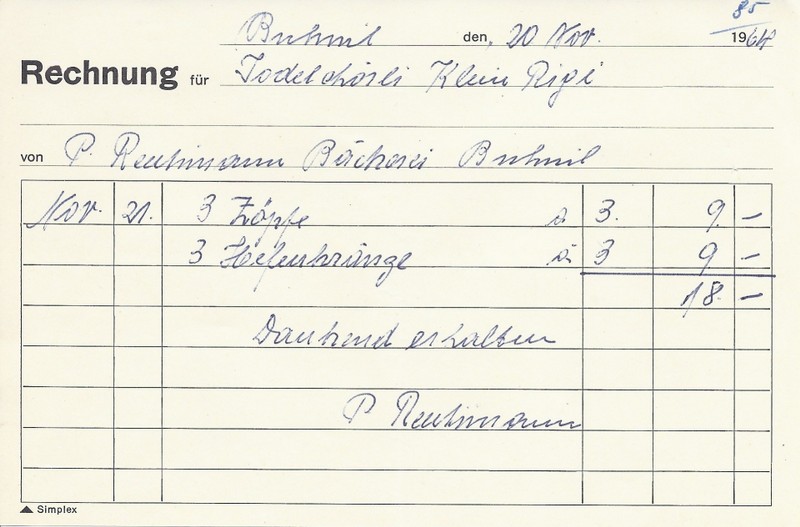 85
Buhwil den, 20 Nov. 1964
Rechnung für Jodelchörli Klein Rigi
von P. Reutimann Bäckerei Buhwil
Nov. 21. 3 Zöpfe à 3. 9. –
3 Hefenkränze à 3 9 –
18. –
Dankend erhalten
P Reutimann
Simplex